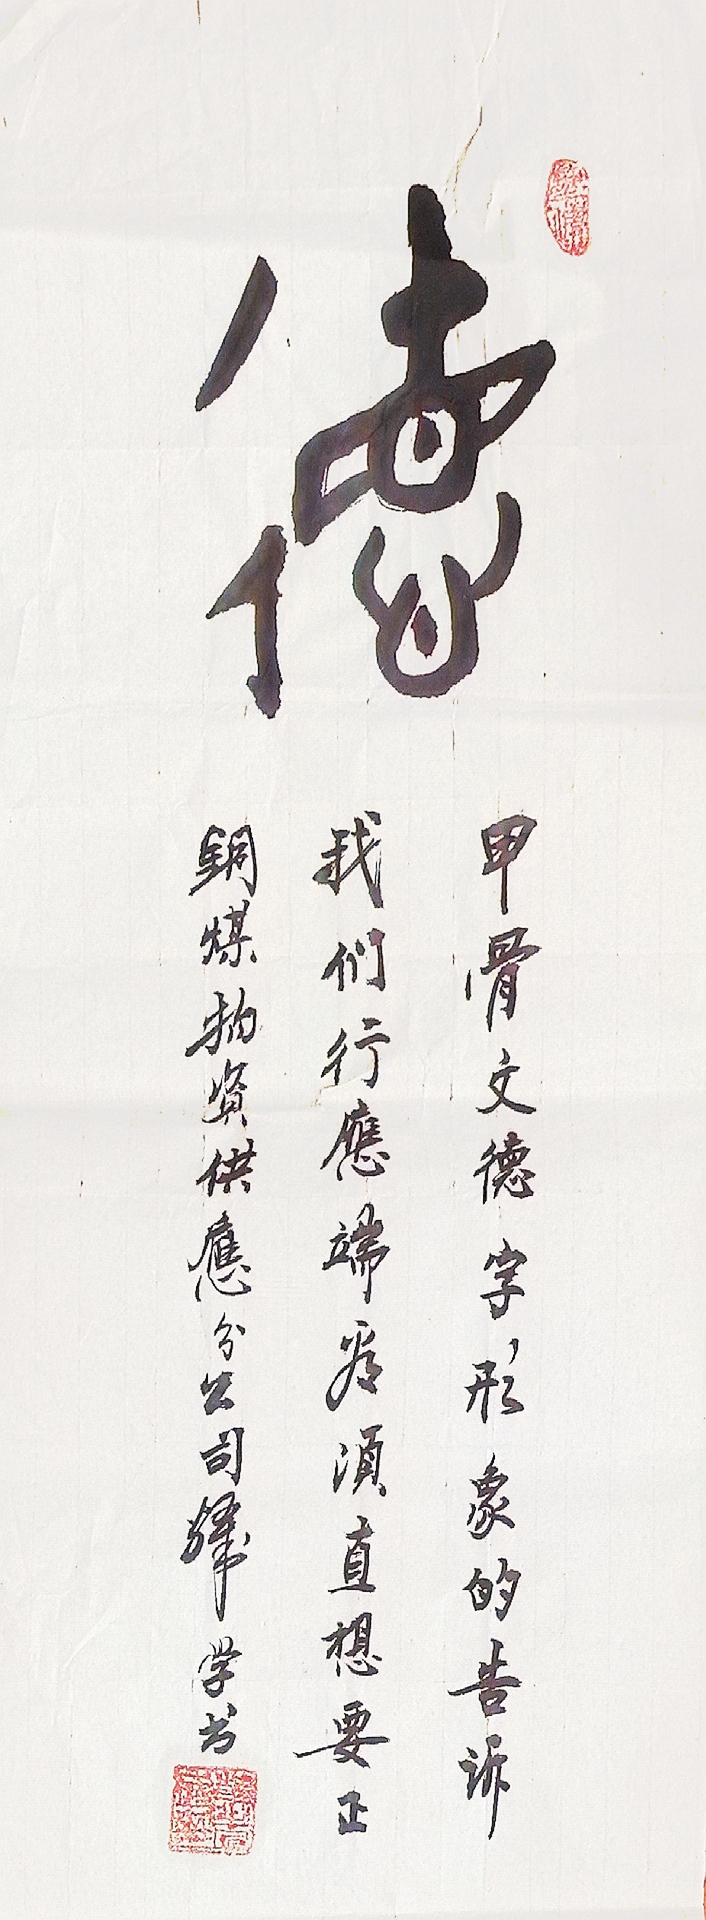 德
甲骨文德字，形象的告诉
我们行應端看須直想要正
銅煤物資供應分公司
学书